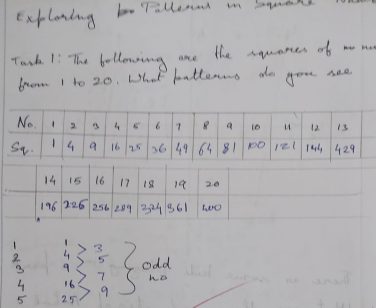 Exploring Patterns in Square
Task 1: The following are the squares of
from 1 to 20. What patterns do you see
No. 1 2 3 4 5 6 7 8 9 10 11 12 13
Sq. 1 4 9 16 25 36 49 64 81 100 121 144 429
14 15 16 17 18 19 20
196 225 256 289 324 361 400
1 1 > 3
2 4 > 5
3 9 > 7 odd
4 16 > 9 no
5 25